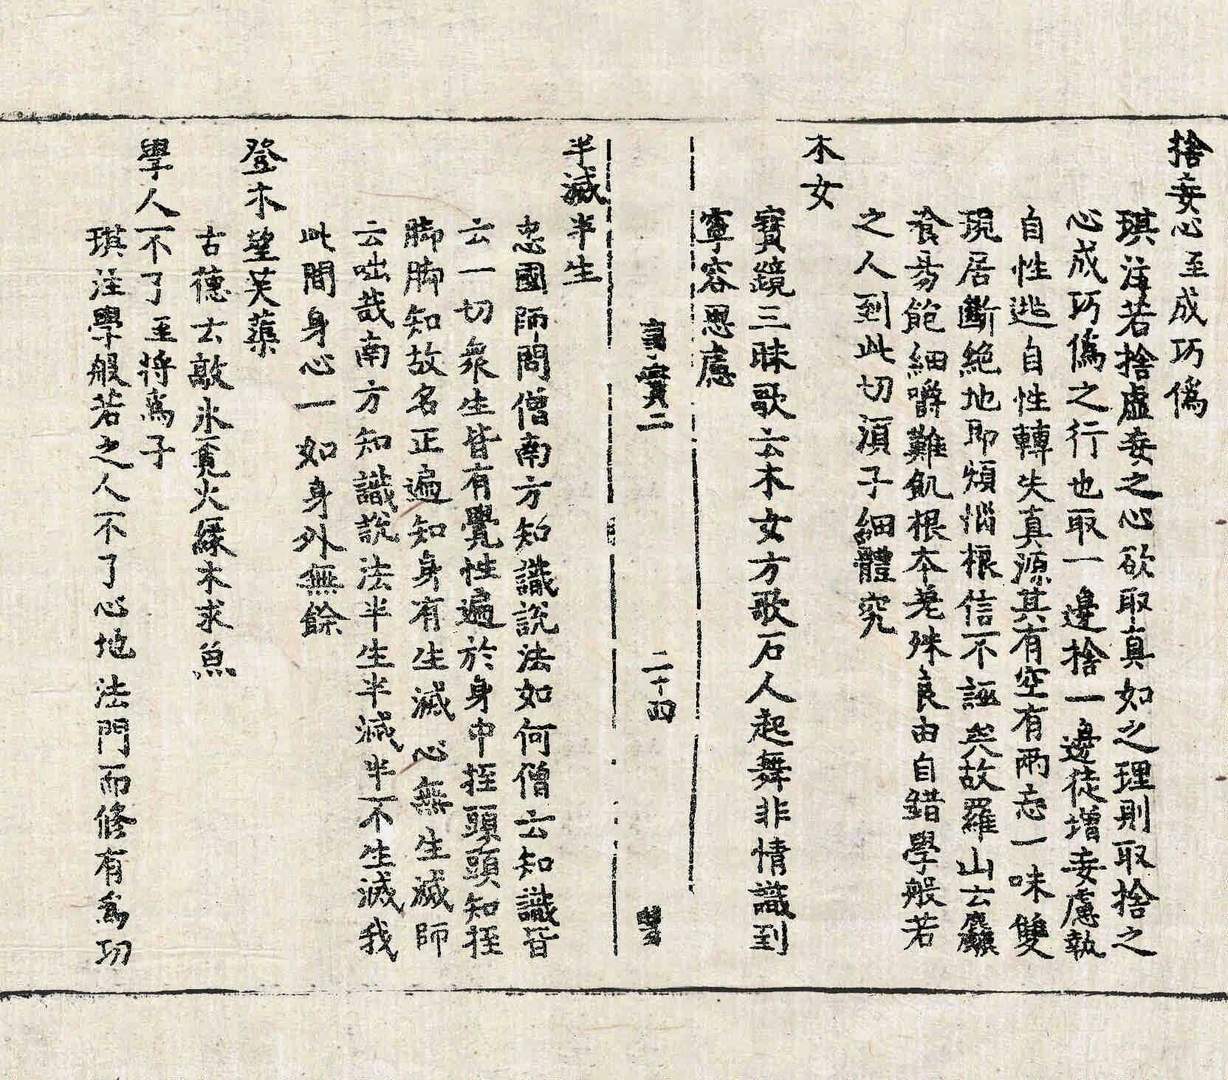 捨妄心至成巧僞
琪注若捨虛妄之心欲取真如之理則取捨之
心成巧僞之行也取一邊捨一邊徒增妄慮執
自性迷自性轉失真源其有空有兩忘一味雙
現居斷絶地即煩惱根信不誣矣故羅山云麤
飡易飽細嚼難飢根本差殊良由自錯學般若
之人到此切湏子細體究
木女
寶鏡三昧歌云木女方歌石人起舞非情識到
寧容思慮
二十四
半滅半生
忠國師問僧南方知識說法如何僧云知識皆
云一切衆生皆有覺性遍於身中挃頭頭知挃
脚脚知故名正遍知身有生滅心無生滅師
云咄哉南方知識說法半生半滅半不生滅我
此間身心一如身外無餘
登木望芙蕖
古德云敲氷覓火緣木求魚
學人不了至將爲子
琪注學般若之人不了心地法門而修有爲功